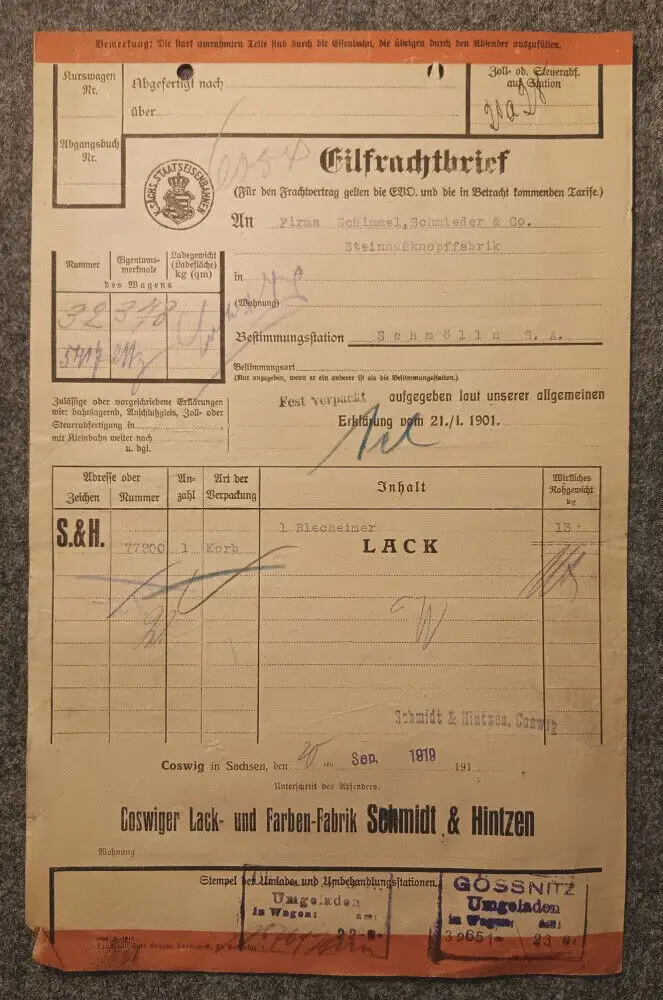 Bemerkung: Die stark umrahmten Teile sind durch die Eisenbahn, die übrigen durch den Absender auszufüllen.
Kurswagen
Nr.
Abgefertigt nach
über
Zoll- od. Steuerabf.
auf Station
Abgangsbuch
Nr.
K. SÄCHS. STAATSEISENBAHNEN
Eilfrachtbrief
(Für den Frachtvertrag gelten die EVO. und die in Betracht kommenden Tarife.)
An Firma Schimmel, Schmieder & Co.
Steinnußknopffabrik
in
(Wohnung)
Nummer
Eigentums-
merkmale
Ladegewicht
(Ladefläche)
kg (qm)
des Wagens
Bestimmungsstation Schmölln S.A.
Bestimmungsort
(Nur anzugeben, wenn er ein anderer ist als die Bestimmungsstation.)
Zulässige oder vorgeschriebene Erklärungen
wie: bahnlagernd, Anschlußgleis, Zoll- oder
Steuerabfertigung in
mit Kleinbahn weiter nach
u. dgl.
Fest verpackt aufgegeben laut unserer allgemeinen
Erklärung vom 21./I. 1901.
Adresse oder
Zeichen Nummer
An-
zahl
Art der
Verpackung
Inhalt
Wirkliches
Rohgewicht
kg
S.&H.
1 Blecheimer 13
77200 1 Korb LACK
Schmidt & Hintzen, Coswig
Coswig in Sachsen, den Sep. 1919 191
Unterschrift des Absenders:
Coswiger Lack- und Farben-Fabrik Schmidt & Hintzen
Wohnung
Stempel der Umlade- und Umbehandlungsstationen.
Umgeladen
in Wagen: am:
22
GÖSSNITZ
Umgeladen
in Wagen: am:
39651 23